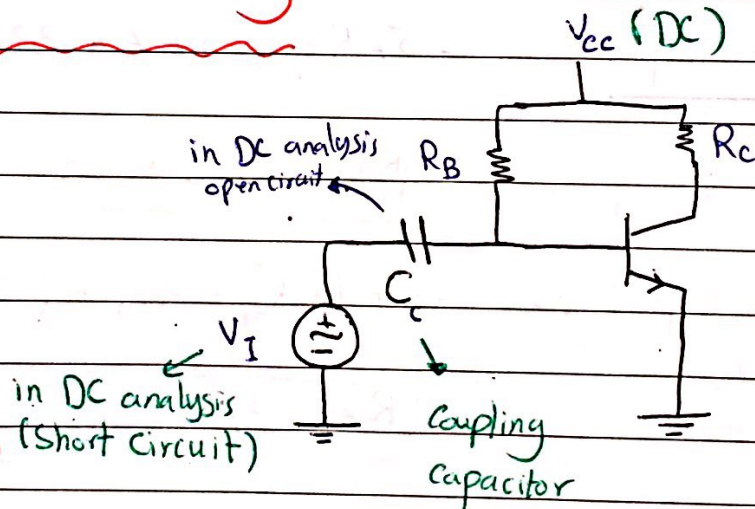 Vcc (DC)
in DC analysis
open ciruit
RB
Rc
Cc
VI
in DC analysis
(Short Circuit)
Coupling
Capacitor